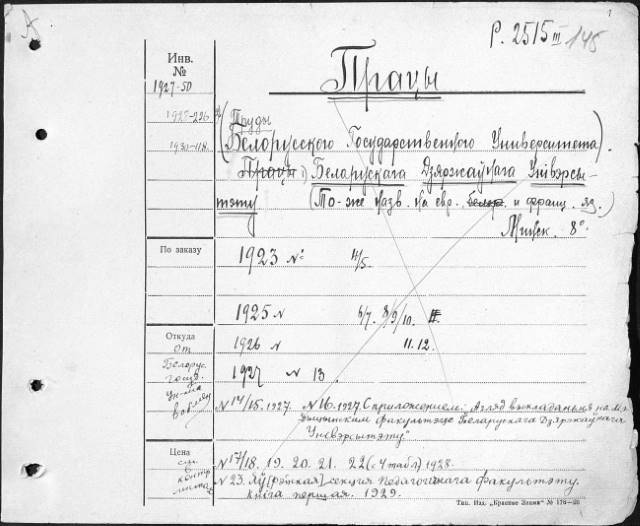 A
P. 2515 III 145
Инв. №
1927-50
Працы
1925-226
Труды
(Белорусского Государственного Университета).
1930-118
Працы Беларускага Дзяржаўнага Унівэрсы-
тэту (То-же назв. на евр., белор. и франц. яз.)
Минск. 8°.
По заказу
1923 № 4/5.
1925 № 6/7. 8/9/10.
Откуда
1926 № 11. 12.
От Белорус. госуд. ун-та
1927 № 13.
№ 14/15. 1927. № 16. 1927. С приложением: Агляд выкладаньня на
факультэце Беларускага Дзяржаўнага
Унівэрсытэту"
Цена
см. в контр. листах
№ 17/18. 19. 20. 21. 22 (с 4 табл) 1928.
№ 23. Яў[рэйская] сэкция Педагогичнага факультэту.
Кніга першая. 1929.
Тип. Изд. „Красное Знамя" № 176—26